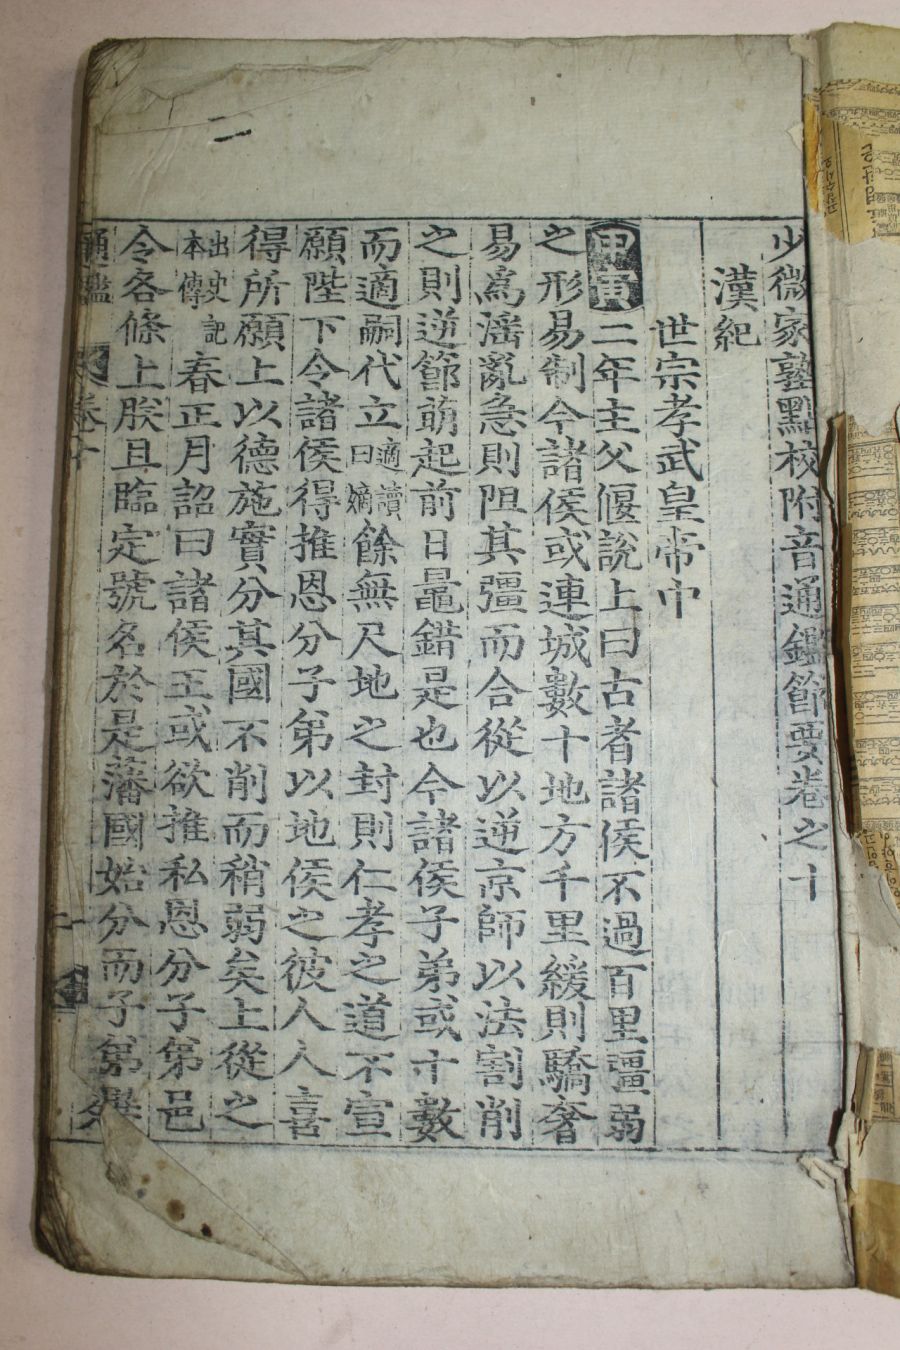 少微家塾點校附音通鑑節要卷之十
漢紀
世宗孝武皇帝中
甲寅二年主父偃說上曰古者諸侯不過百里彊弱
之形易制今諸侯或連城數十地方千里緩則驕奢
易爲滛亂急則阻其彊而合從以逆京師以法割削
之則逆節萌起前日鼂錯是也今諸侯子弟或十數
而適嗣代立適讀曰嫡餘無尺地之封則仁孝之道不宣
願陛下令諸侯得推恩分子弟以地侯之彼人人喜
得所願上以德施實分其國不削而稍弱矣上從之
出史記本傳春正月詔曰諸侯王或欲推私恩分子弟邑
令各條上朕且臨定號名於是藩國始分而子弟畢
通鑑 卷十